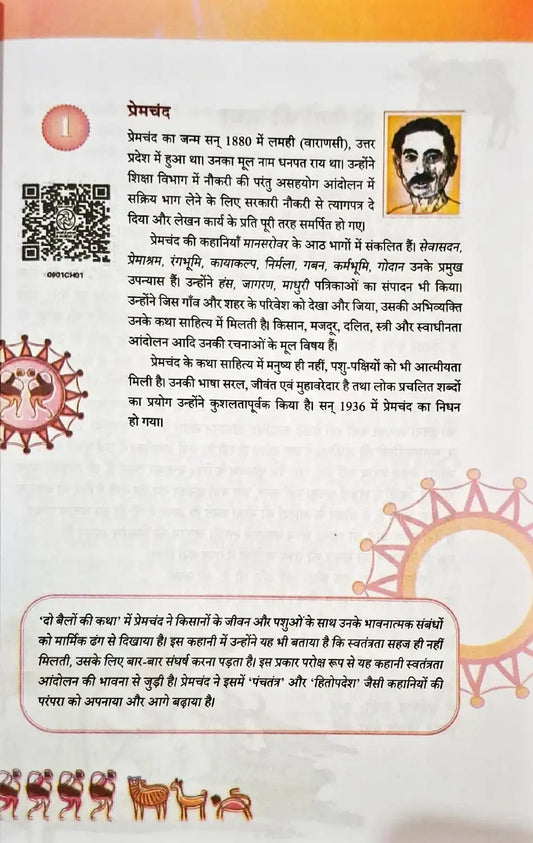 1
प्रेमचंद
प्रेमचंद का जन्म सन् 1880 में लमही (वाराणसी), उत्तर
प्रदेश में हुआ था। उनका मूल नाम धनपत राय था। उन्होंने
शिक्षा विभाग में नौकरी की परंतु असहयोग आंदोलन में
सक्रिय भाग लेने के लिए सरकारी नौकरी से त्यागपत्र दे
दिया और लेखन कार्य के प्रति पूरी तरह समर्पित हो गए।
प्रेमचंद की कहानियाँ मानसरोवर के आठ भागों में संकलित हैं। सेवासदन,
प्रेमाश्रम, रंगभूमि, कायाकल्प, निर्मला, गबन, कर्मभूमि, गोदान उनके प्रमुख
उपन्यास हैं। उन्होंने हंस, जागरण, माधुरी पत्रिकाओं का संपादन भी किया।
उन्होंने जिस गाँव और शहर के परिवेश को देखा और जिया, उसकी अभिव्यक्ति
उनके कथा साहित्य में मिलती है। किसान, मजदूर, दलित, स्त्री और स्वाधीनता
आंदोलन आदि उनकी रचनाओं के मूल विषय हैं।
प्रेमचंद के कथा साहित्य में मनुष्य ही नहीं, पशु-पक्षियों को भी आत्मीयता
मिली है। उनकी भाषा सरल, जीवंत एवं मुहावरेदार है तथा लोक प्रचलित शब्दों
का प्रयोग उन्होंने कुशलतापूर्वक किया है। सन् 1936 में प्रेमचंद का निधन
हो गया।
0901CH01
'दो बैलों की कथा' में प्रेमचंद ने किसानों के जीवन और पशुओं के साथ उनके भावनात्मक संबंधों
को मार्मिक ढंग से दिखाया है। इस कहानी में उन्होंने यह भी बताया है कि स्वतंत्रता सहज ही नहीं
मिलती, उसके लिए बार-बार संघर्ष करना पड़ता है। इस प्रकार परोक्ष रूप से यह कहानी स्वतंत्रता
आंदोलन की भावना से जुड़ी है। प्रेमचंद ने इसमें 'पंचतंत्र' और 'हितोपदेश' जैसी कहानियों की
परंपरा को अपनाया और आगे बढ़ाया है।